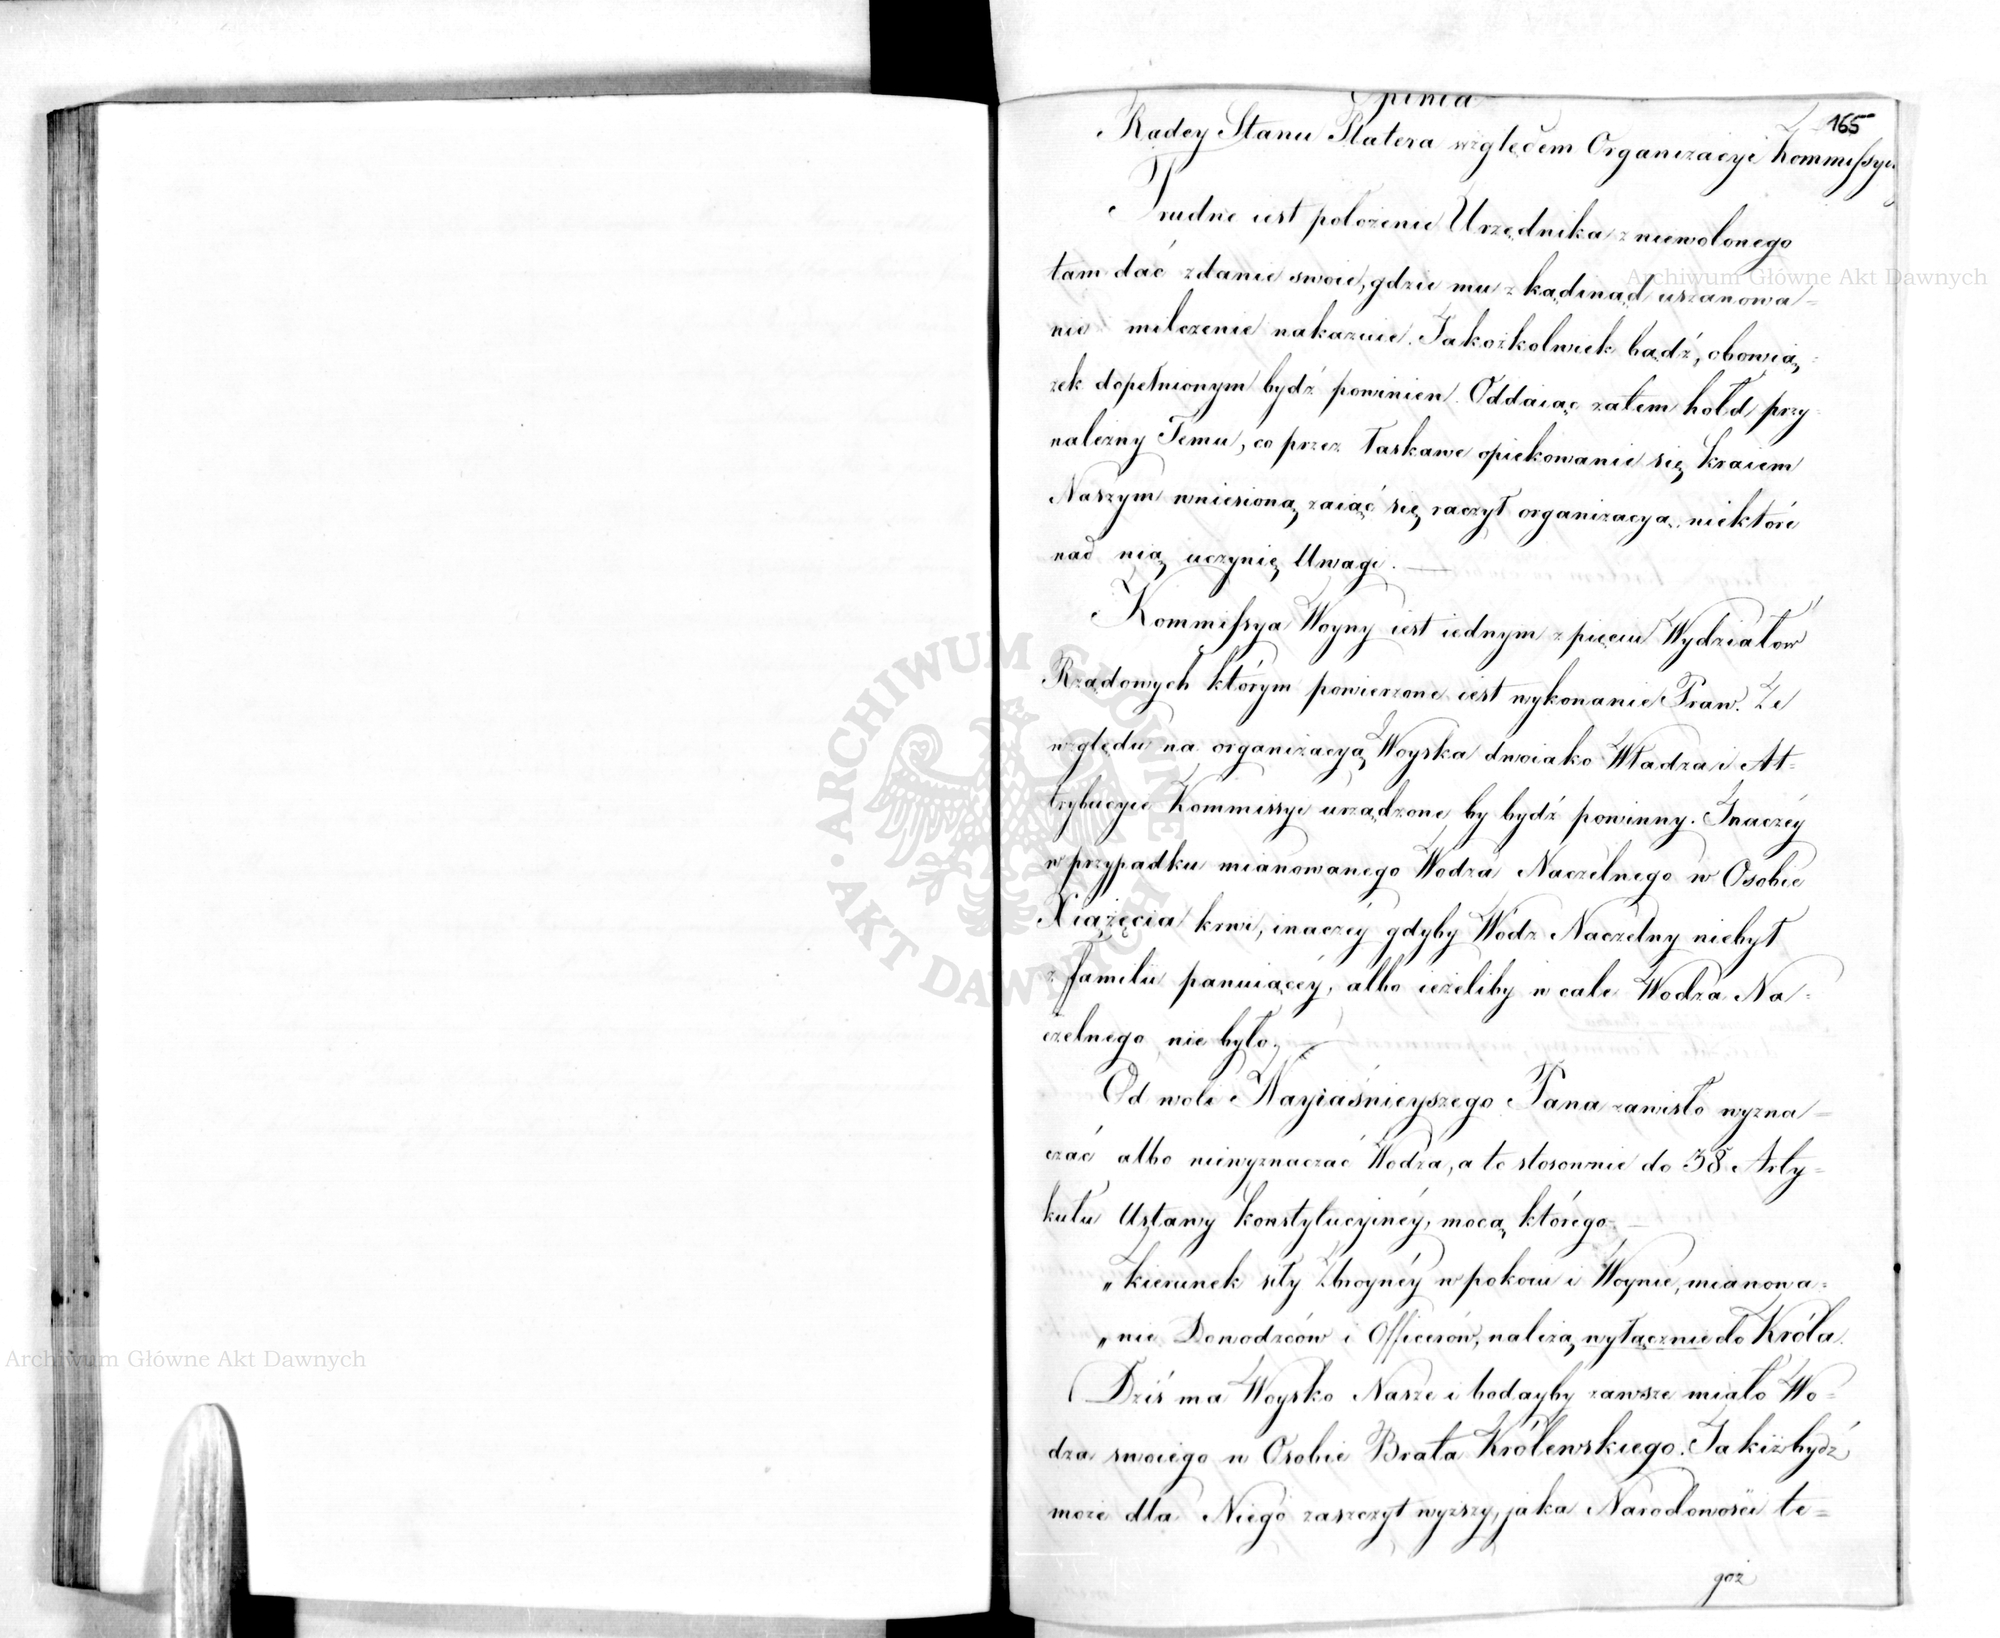 165
Opinia
Radcy Stanu Platera względem Organizacyi Kommissyi
Trudne iest położenie Urzędnika zniewolonego
tam dać zdanie swoie, gdzie mu zkądinąd uszanowa=
nie milczenie nakazuie. Jakożkolwiek bądź, obowią=
zek dopełnionym bydź powinien. Oddaiąc zatem hołd przy=
należny Temu, co przez łaskawe opiekowanie się kraiem
Naszym wniesioną zaiąć się raczył organizacyą, niektóre
nad nią uczynię Uwagi. —
Kommissya Woyny iest iednym z pięciu Wydziałów
Rządowych którym powierzone iest wykonanie Praw. Ze
względu na organizacyą Woyska dwoiako Władza i At=
trybucyie Kommissyi urządzone by bydź powinny. Inaczéy
w przypadku mianowanego Wodza Naczelnego w Osobie
Xiążęcia krwi, inaczéy gdyby Wódz Naczelny niebył
z familii panuiącéy, albo ieżeliby w cale Wodza Na=
czelnego nie było. —
Od woli Nayiaśnieyszego Pana zawisło wyzna=
czać albo niewyznaczać Wodza, a to stosownie do 38 Arty=
kułu Ustawy Konstytucyinéy, mocą którego —
„kierunek siły Zbroynéy w pokoiu i Woynie, mianowa=
„nie Dowodzców i Officerów, należą wyłącznie do Króla.
Dziś ma Woysko Nasze i bodayby zawsze miało Wo=
dza swoiego w Osobie Brata Królewskiego. Jakiż bydź
może dla Niego zaszczyt wyższy, jaka Narodowości te=
goż
Archiwum Główne Akt Dawnych
ARCHIWUM GŁÓWNE AKT DAWNYCH
Archiwum Główne Akt Dawnych